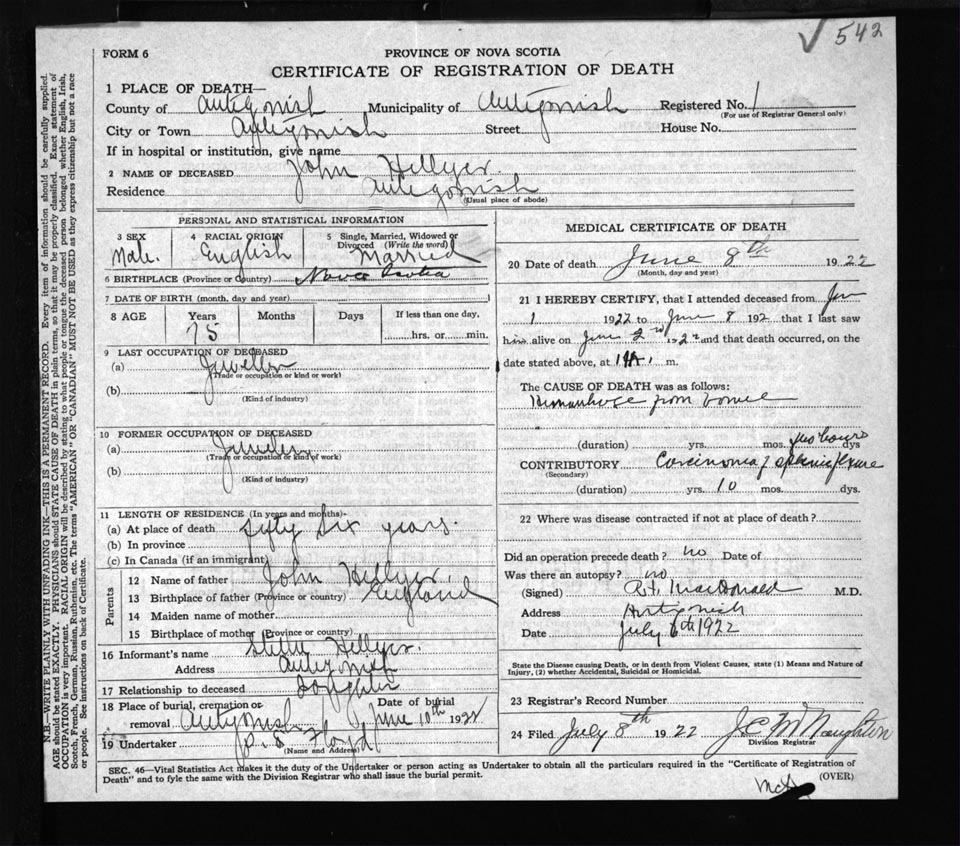 542
FORM 6
PROVINCE OF NOVA SCOTIA
CERTIFICATE OF REGISTRATION OF DEATH
1 PLACE OF DEATH—
County of Antigonish Municipality of Antigonish Registered No. 1
(For use of Registrar General only)
City or Town Antigonish Street House No.
If in hospital or institution, give name
2 NAME OF DECEASED John Hellyer.
Residence Antigonish
(Usual place of abode)
PERSONAL AND STATISTICAL INFORMATION
3 SEX Male.
4 RACIAL ORIGIN English
5 Single, Married, Widowed or Divorced (Write the word) Married
6 BIRTHPLACE (Province or Country) Nova Scotia
7 DATE OF BIRTH (month, day and year)
8 AGE Years Months Days If less than one day,
75 hrs. or min.
9 LAST OCCUPATION OF DECEASED
(a) Jeweller
(Trade or occupation or kind or work)
(b)
(Kind of industry)
10 FORMER OCCUPATION OF DECEASED
(a) Jeweller
(Trade or occupation or kind of work)
(b)
(Kind of industry)
11 LENGTH OF RESIDENCE (In years and months)-
(a) At place of death fifty six years.
(b) In province
(c) In Canada (if an immigrant)
Parents
12 Name of father John Hellyer.
13 Birthplace of father (Province or country) England
14 Maiden name of mother
15 Birthplace of mother (Province or country)
16 Informant's name Hellyer.
Address Antigonish
17 Relationship to deceased Daughter
18 Place of burial, cremation or removal Antigonish Date of burial June 10th 1922
19 Undertaker D. Floyd
(Name and Address)
MEDICAL CERTIFICATE OF DEATH
20 Date of death June 8th 1922
(Month, day and year)
21 I HEREBY CERTIFY, that I attended deceased from Jan
1 1922 to June 8 192 that I last saw
him alive on June 2nd 192 and that death occurred, on the
date stated above, at m.
The CAUSE OF DEATH was as follows:
Hemorrhage from bowel
(duration) yrs. mos. two hours dys
CONTRIBUTORY Carcinoma of splenic flexure
(Secondary)
(duration) yrs. 10 mos. dys.
22 Where was disease contracted if not at place of death?
Did an operation precede death? no Date of
Was there an autopsy? no
(Signed) MacDonald M.D.
Address Antigonish
Date July 6th 1922
State the Disease causing Death, or in death from Violent Causes, state (1) Means and Nature of
Injury, (2) whether Accidental, Suicidal or Homicidal.
23 Registrar's Record Number
24 Filed July 8th 1922 J C McNaughton
Division Registrar
SEC. 46—Vital Statistics Act makes it the duty of the Undertaker or person acting as Undertaker to obtain all the particulars required in the "Certificate of Registration of
Death" and to fyle the same with the Division Registrar who shall issue the burial permit.
(OVER)
N.B.—WRITE PLAINLY WITH UNFADING INK—THIS IS A PERMANENT RECORD. Every item of information should be carefully supplied.
AGE should be stated EXACTLY. PHYSICIANS should STATE CAUSE OF DEATH in plain terms, so that it may be properly classified. Exact statement of
OCCUPATION is very important. RACIAL ORIGIN will be described by stating to what people or tongue the deceased person belonged whether English, Irish,
Scotch, French, German, Russian, Ruthenian, etc. The terms "AMERICAN" OR "CANADIAN" MUST NOT BE USED as they express citizenship but not a race
or people. See instructions on back of Certificate.